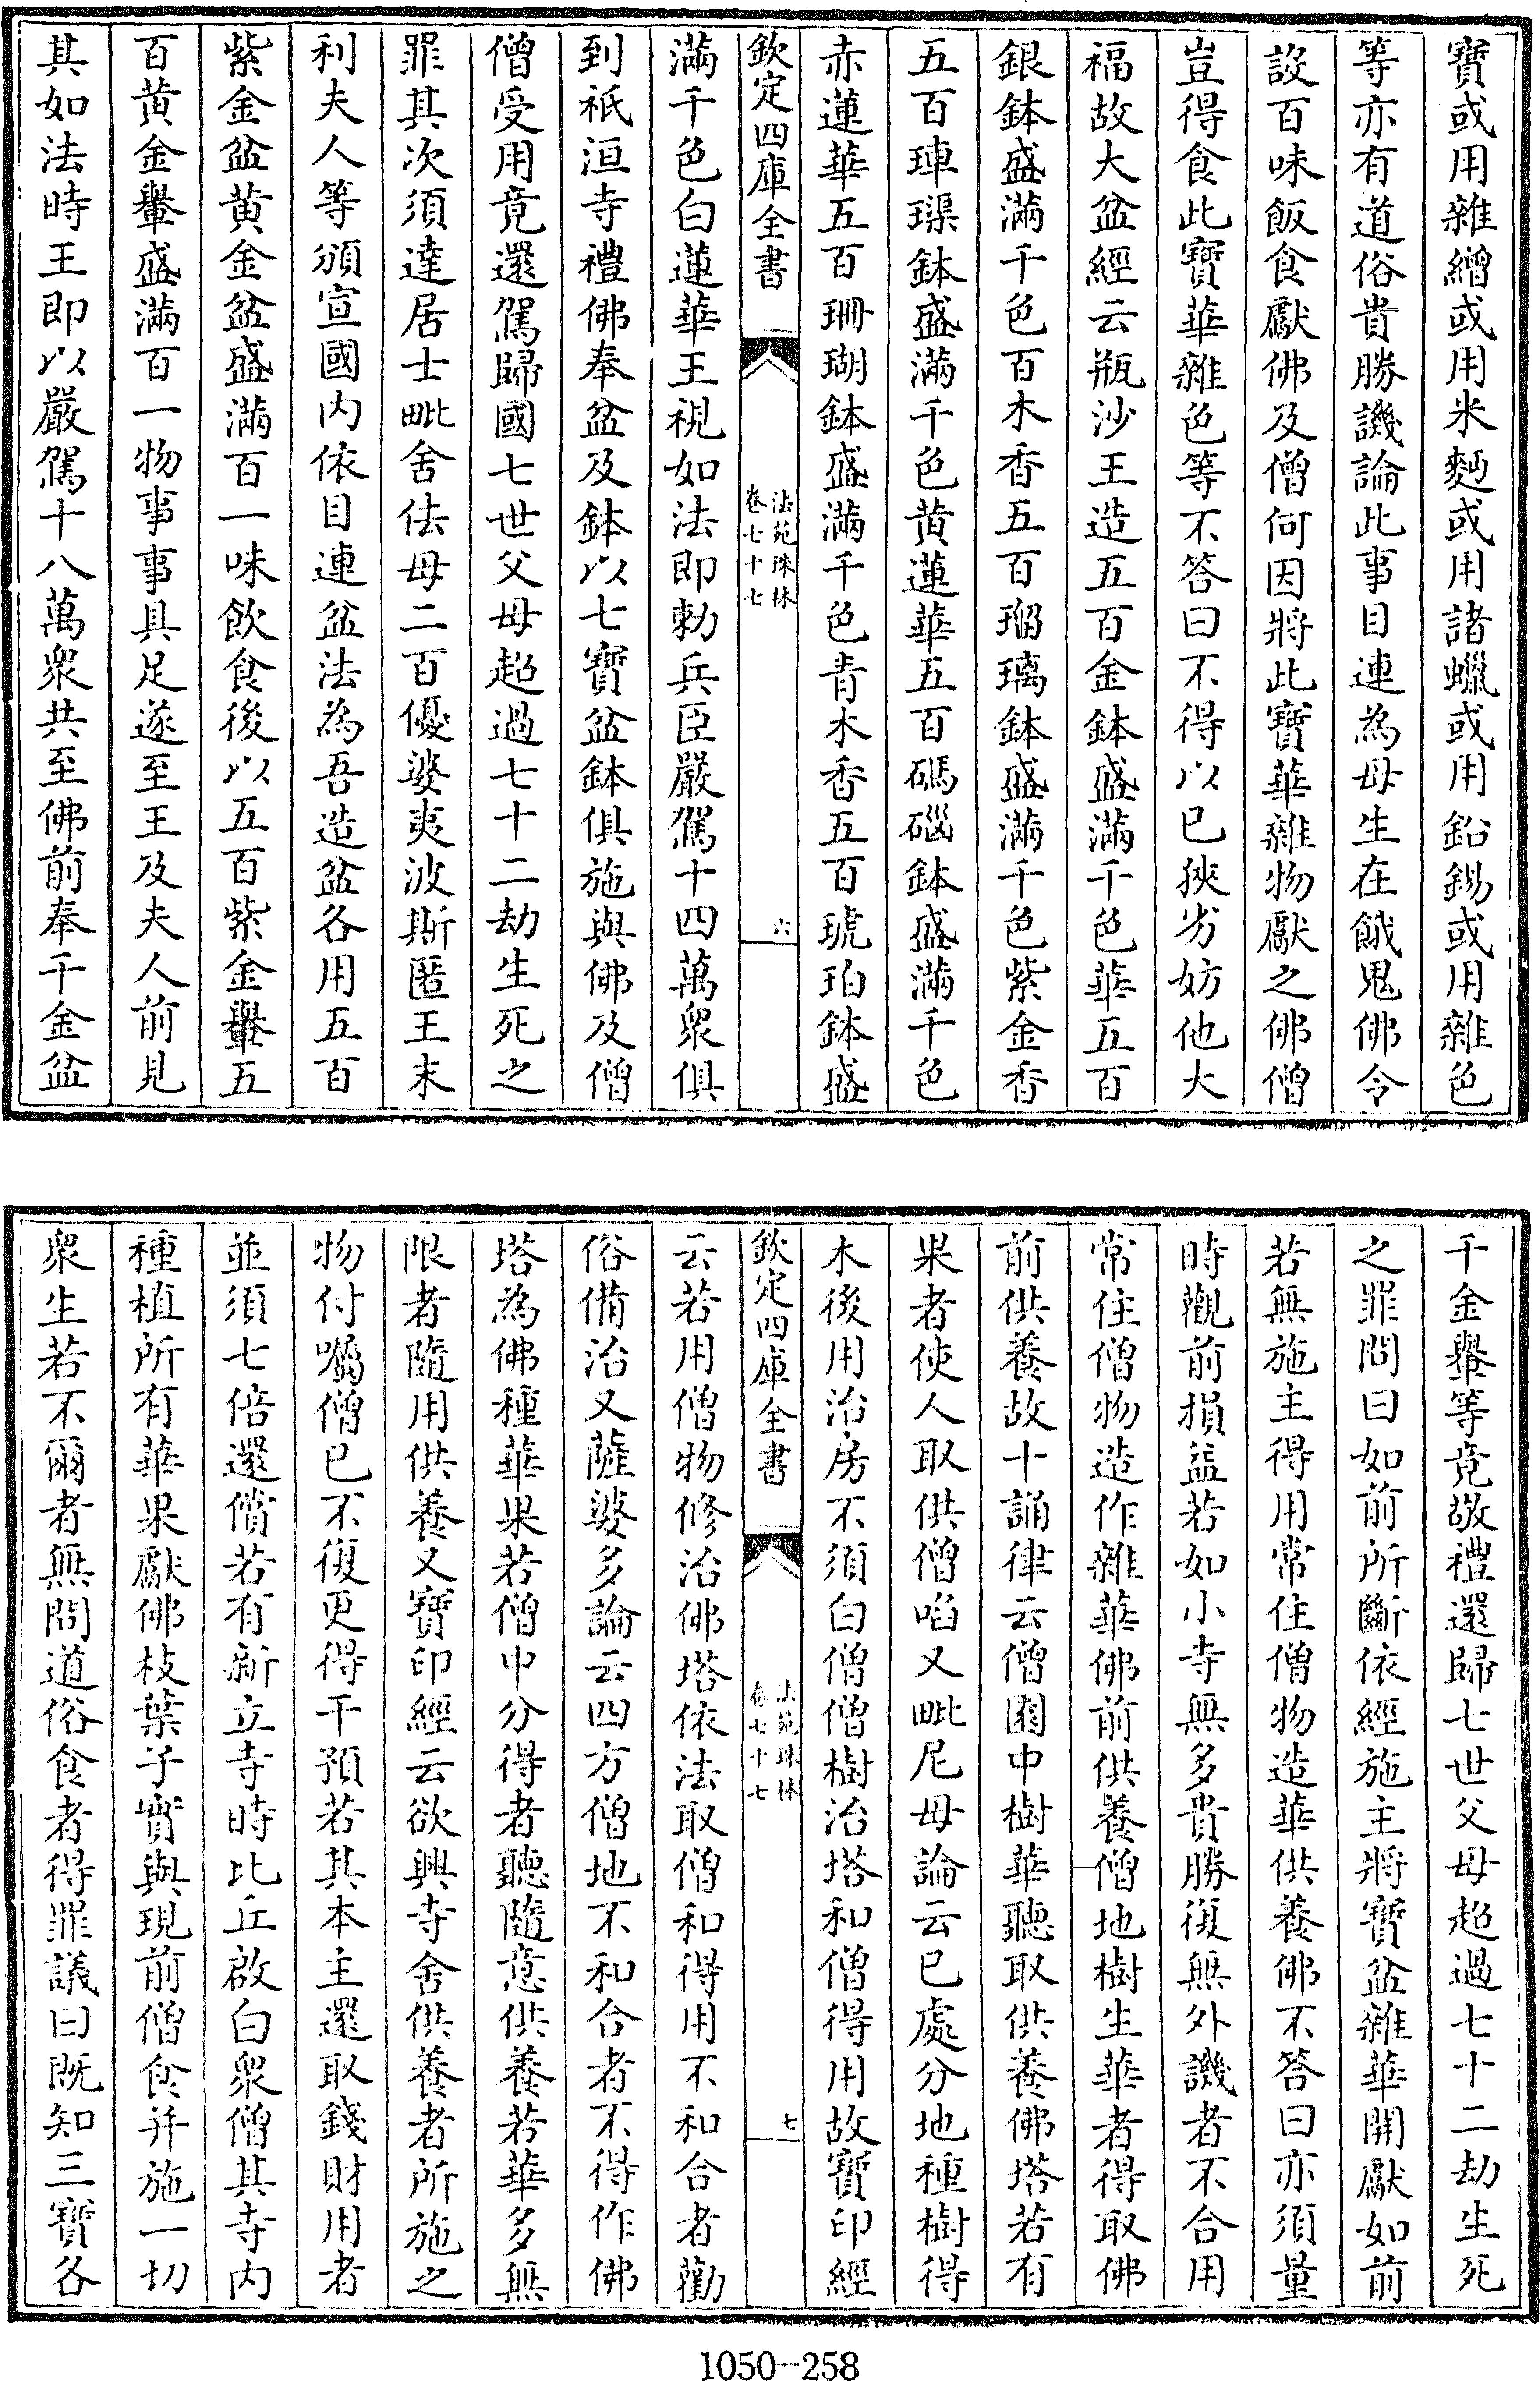 寶或用雜繒或用米麫或用諸蠟或用鉛錫或用雜色
等亦有道俗貴勝譏論此事目連為母生在餓鬼佛令
設百味飯食獻佛及僧何因將此寶華雜物獻之佛僧
豈得食此寶華雜色等不答曰不得以已狹劣妨他大
福故大盆經云瓶沙王造五百金鉢盛滿千色華五百
銀鉢盛滿千色百木香五百瑠璃鉢盛滿千色紫金香
五百硨磲鉢盛滿千色黄蓮華五百碼碯鉢盛滿千色
赤蓮華五百珊瑚鉢盛滿千色青木香五百琥珀鉢盛
欽定四庫全書
法苑珠林
卷七十七
六
滿千色白蓮華王視如法即勅兵臣嚴駕十四萬衆俱
到祇洹寺禮佛奉盆及鉢以七寶盆鉢俱施與佛及僧
僧受用竟還駕歸國七世父母超過七十二劫生死之
罪其次須達居士毗舍佉母二百優婆夷波斯匿王末
利夫人等頒宣國内依目連盆法為吾造盆各用五百
紫金盆黄金盆盛滿百一味飲食後以五百紫金轝五
百黄金轝盛滿百一物事事具足遂至王及夫人前見
其如法時王即以嚴駕十八萬衆共至佛前奉千金盆
千金轝等竟敬禮還歸七世父母超過七十二劫生死
之罪問曰如前所斷依經施主將寶盆雜華開獻如前
若無施主得用常住僧物造華供養佛不答曰亦須量
時觀前損益若如小寺無多貴勝復無外譏者不合用
常住僧物造作雜華佛前供養僧地樹生華者得取佛
前供養故十誦律云僧園中樹華聽取供養佛塔若有
果者使人取供僧啗又毗尼母論云已處分地種樹得
木後用治房不須白僧僧樹治塔和僧得用故寶印經
欽定四庫全書
法苑珠林
卷七十七
七
云若用僧物修治佛塔依法取僧和得用不和合者勸
俗備治又薩婆多論云四方僧地不和合者不得作佛
塔為佛種華果若僧中分得者聽隨意供養若華多無
限者隨用供養又寶印經云欲興寺舍供養者所施之
物付囑僧已不復更得干預若其本主還取錢財用者
並須七倍還償若有新立寺時比丘啟白衆僧其寺内
種植所有華果獻佛枝葉子實與現前僧食并施一切
衆生若不爾者無問道俗食者得罪議曰既知三寶各
1050-258